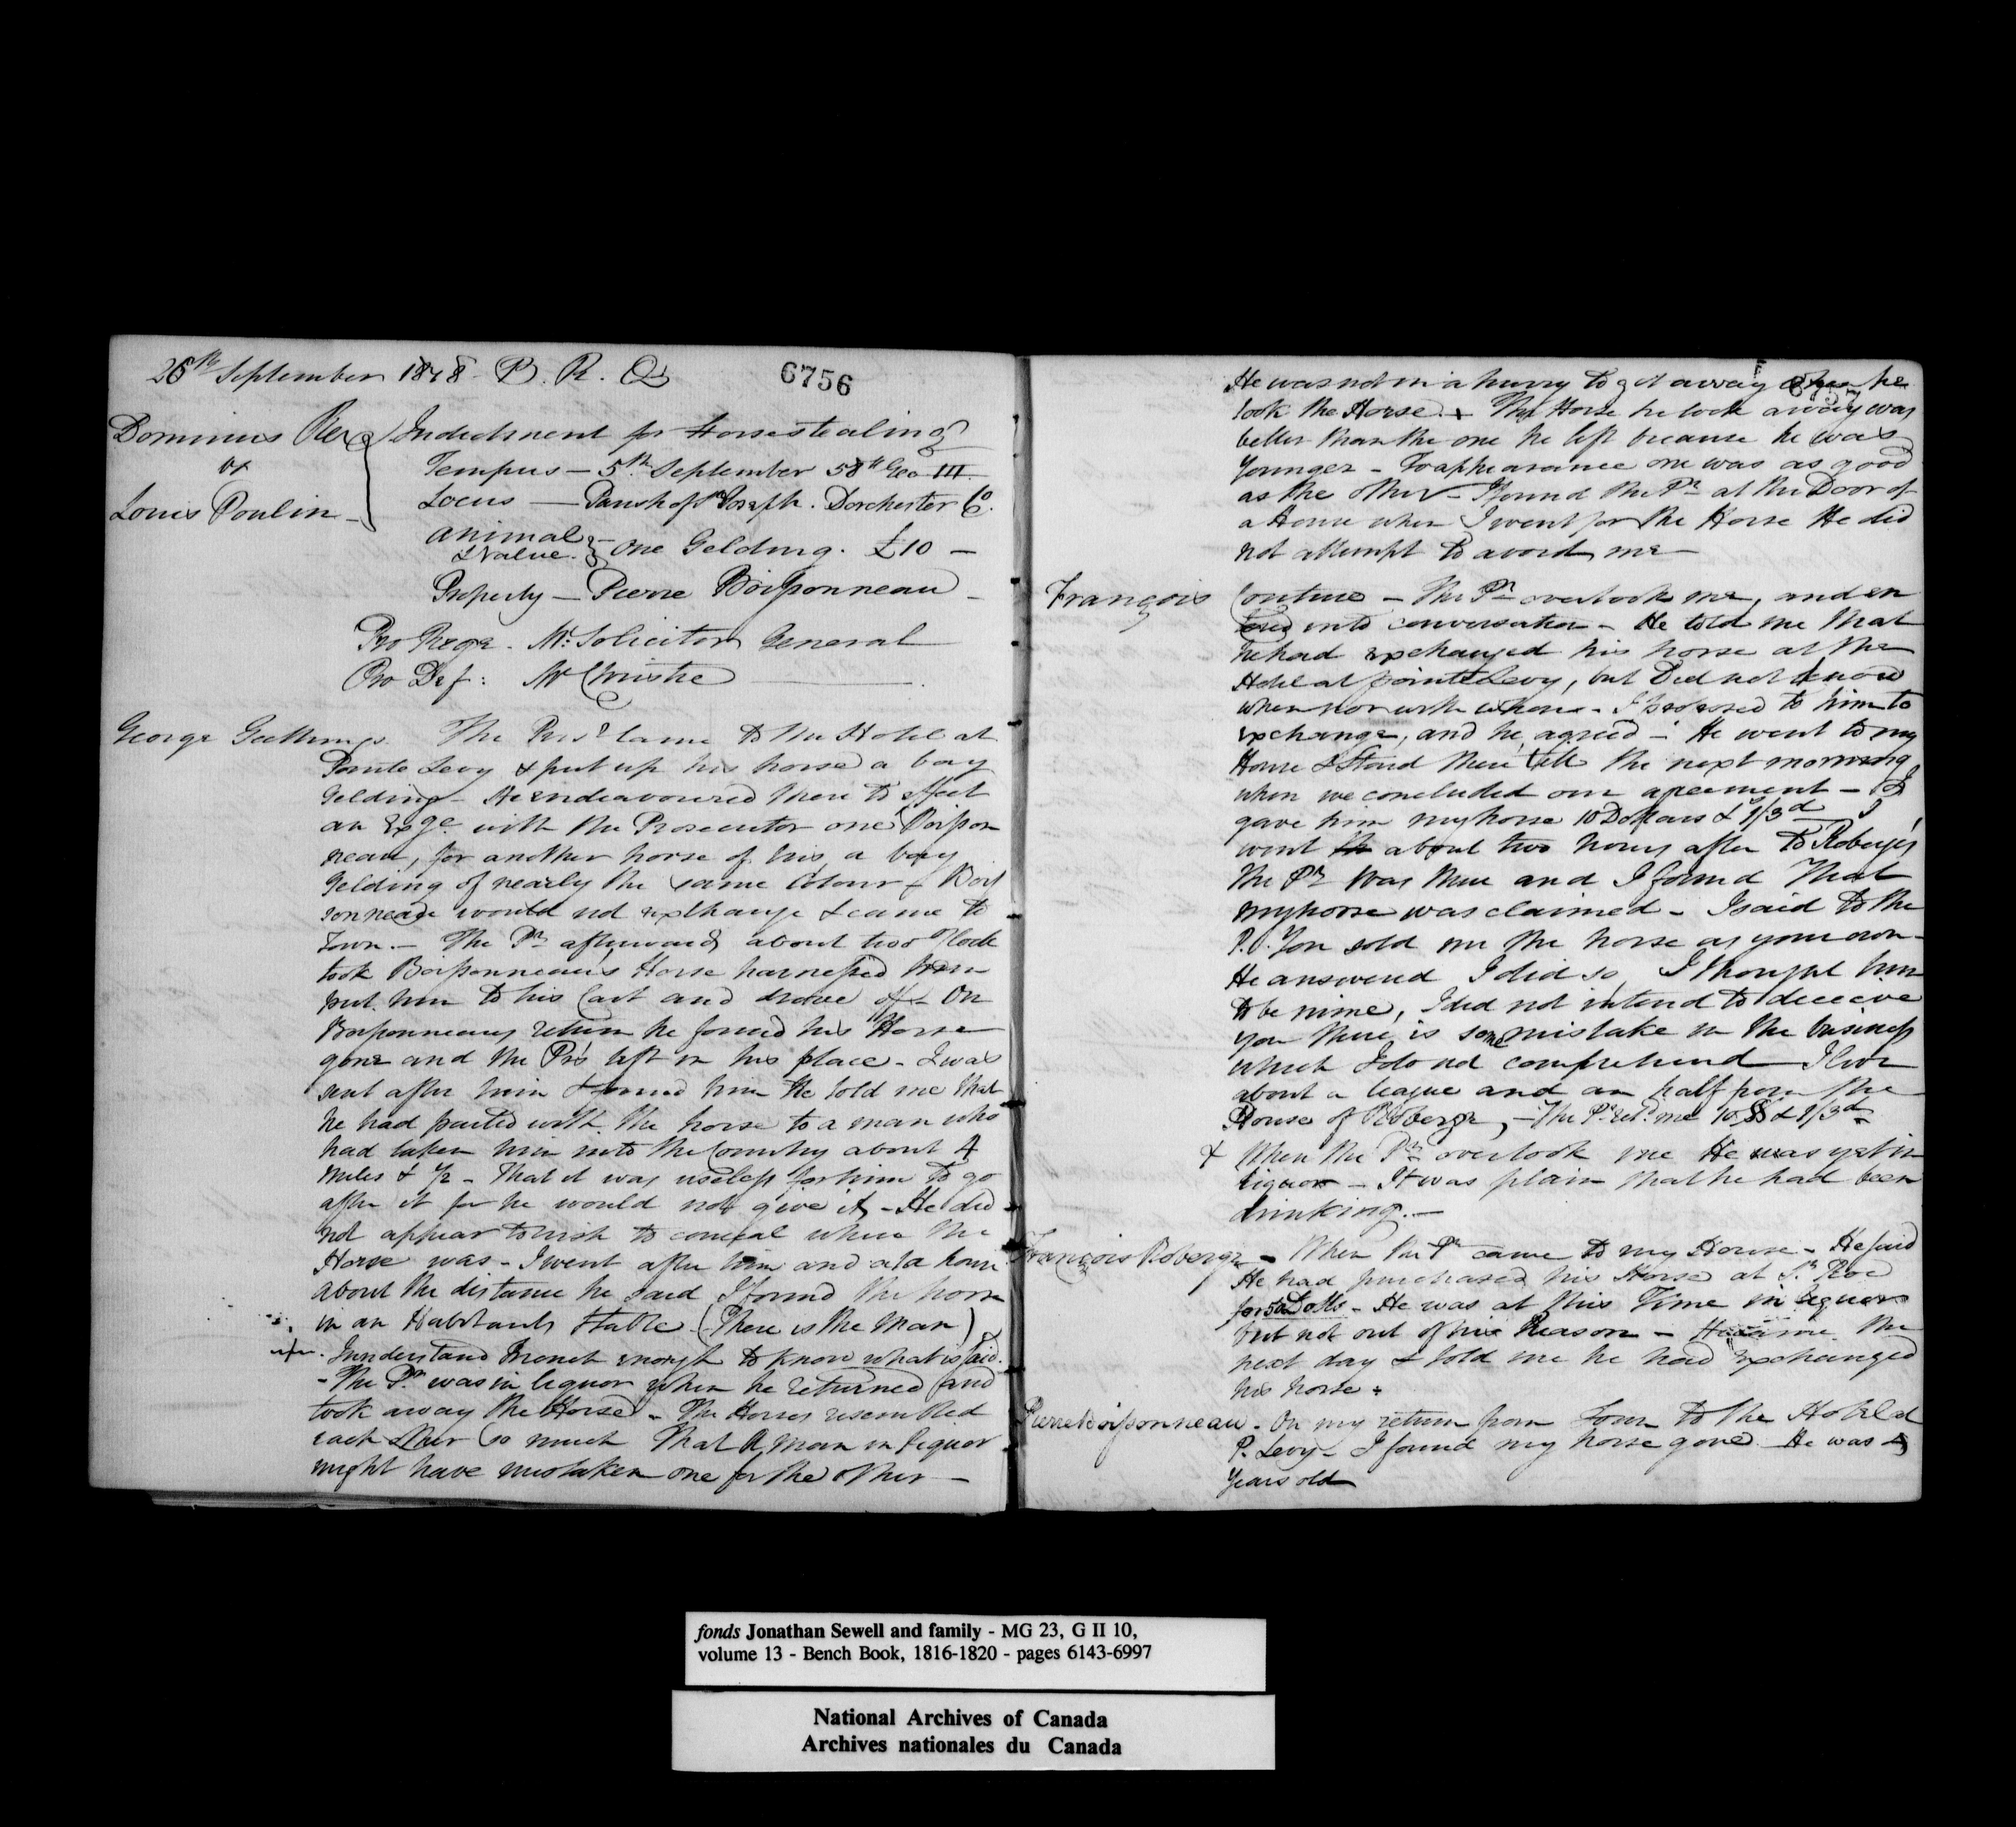 26th September 1818 - B. R. Q
6756
Dominus Rex
vs
Louis Poulin -
Indictment for Horsestealing
Tempus - 5th September 58th Geo III.
Locus - Parish of St Joseph. Dorchester Co.
Animal & Value. } - One Gelding. £10 -
Property - Pierre Boissonneau -
Pro Rege. Mr. Solicitor General
Pro Def: Mr Christie
George Gethings. The Prisr came to the Hotel at
Pointe Levy & put up his horse a bay
Gelding - He endeavoured there to effect
an Exge. with the Prosecutor one Boisson
neau, for another horse of his, a bay
Gelding of nearly the same Colour - Bois
sonneau would not exchange & came to
Town. - The Pr. afterwards about two o'Clock
took Boissonneau's Horse harnessed him
put him to his Cart and drove off - On
Boissonneau's return he found his Horse
gone and the Prs left in his place - I was
sent after him & found him He told me that
he had parted with the horse to a man who
had taken him into the Country about 4
miles & 1/2 - That it was useless for him to go
after it for he would not give it, - He did
not appear to wish to conceal where the
Horse was - I went after him and at a house
about the distance he said I found the horse
in an Habitants Stable (There is the Man)
I understand French enough to know what is said.
- The Pr. was in liquor when he returned and
took away the Horse - The Horses resembled
each other so much that A man in liquor
might have mistaken one for the other -
6757
He was not in a hurry to get away when he
took the Horse. + The Horse he took away was
better than the one he left because he was
Younger - In appearance one was as good
as the other - I found the Pr. at the Door of
a House when I went for the Horse He did
not attempt to avoid me -
François Couture - The Pr. overtook me, and en
tered into conversation - He told me that
he had exchanged his horse at the
Hotel at pointe Levy, but Did not know
when nor with whom - I proposed to him to
exchange, and he agreed - He went to my
House & Staid there till the next morning
when we concluded our agreement - I
gave him my horse 10 Dollars & 1/3d I
went about two hours after to Roberge's
The Pr. Was there and I found That
my horse was claimed - I said to the
P. You sold me the horse as your own -
He answered I did so, I thought him
to be mine, I did not intend to deceive
you There is some mistake in the business
which I do not comprehend I live
about a league and an half from the
House of Roberge, - The Pr. retd. me 10 $$ & 1/3d
+ When the Pr. overtook me He was yet in
liquor - It was plain that he had been
drinking. -
François Roberge - When the Pr. came to my House - He said
He had purchased his Horse at St. Roc
for 50 Dolls - He was at this Time in liquor
but not out of his Reason - He came the
next day & told me he had exchanged
his horse +
Pierre Boissonneau - On my return from Town to the Hotel at
P. Levy - I found my horse gone He was
Years old
fonds Jonathan Sewell and family - MG 23, G II 10,
volume 13 - Bench Book, 1816-1820 - pages 6143-6997
National Archives of Canada
Archives nationales du Canada